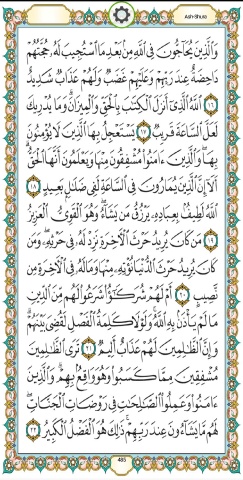 Ash-Shura
وَالَّذِينَ يُحَاجُّونَ فِي اللَّهِ مِنْ بَعْدِ مَا اسْتُجِيبَ لَهُ حُجَّتُهُمْ
دَاحِضَةٌ عِنْدَ رَبِّهِمْ وَعَلَيْهِمْ غَضَبٌ وَلَهُمْ عَذَابٌ شَدِيدٌ
﴿١٦﴾ اللَّهُ الَّذِي أَنْزَلَ الْكِتَٰبَ بِالْحَقِّ وَالْمِيزَانَ وَمَا يُدْرِيكَ
لَعَلَّ السَّاعَةَ قَرِيبٌ ﴿١٧﴾ يَسْتَعْجِلُ بِهَا الَّذِينَ لَا يُؤْمِنُونَ
بِهَا وَالَّذِينَ ءَامَنُوا مُشْفِقُونَ مِنْهَا وَيَعْلَمُونَ أَنَّهَا الْحَقُّ
أَلَا إِنَّ الَّذِينَ يُمَارُونَ فِي السَّاعَةِ لَفِي ضَلَٰلٍ بَعِيدٍ ﴿١٨﴾
اللَّهُ لَطِيفٌ بِعِبَادِهِ يَرْزُقُ مَنْ يَشَاءُ وَهُوَ الْقَوِيُّ الْعَزِيزُ
﴿١٩﴾ مَنْ كَانَ يُرِيدُ حَرْثَ الْآخِرَةِ نَزِدْ لَهُ فِي حَرْثِهِ وَمَنْ
كَانَ يُرِيدُ حَرْثَ الدُّنْيَا نُؤْتِهِ مِنْهَا وَمَا لَهُ فِي الْآخِرَةِ مِنْ
نَصِيبٍ ﴿٢٠﴾ أَمْ لَهُمْ شُرَكَٰؤُا شَرَعُوا لَهُمْ مِنَ الدِّينِ
مَا لَمْ يَأْذَنْ بِهِ اللَّهُ وَلَوْلَا كَلِمَةُ الْفَصْلِ لَقُضِيَ بَيْنَهُمْ
وَإِنَّ الظَّٰلِمِينَ لَهُمْ عَذَابٌ أَلِيمٌ ﴿٢١﴾ تَرَى الظَّٰلِمِينَ
مُشْفِقِينَ مِمَّا كَسَبُوا وَهُوَ وَاقِعٌ بِهِمْ وَالَّذِينَ
ءَامَنُوا وَعَمِلُوا الصَّٰلِحَٰتِ فِي رَوْضَاتِ الْجَنَّاتِ
لَهُمْ مَا يَشَاءُونَ عِنْدَ رَبِّهِمْ ذَٰلِكَ هُوَ الْفَضْلُ الْكَبِيرُ ﴿٢٢﴾
485